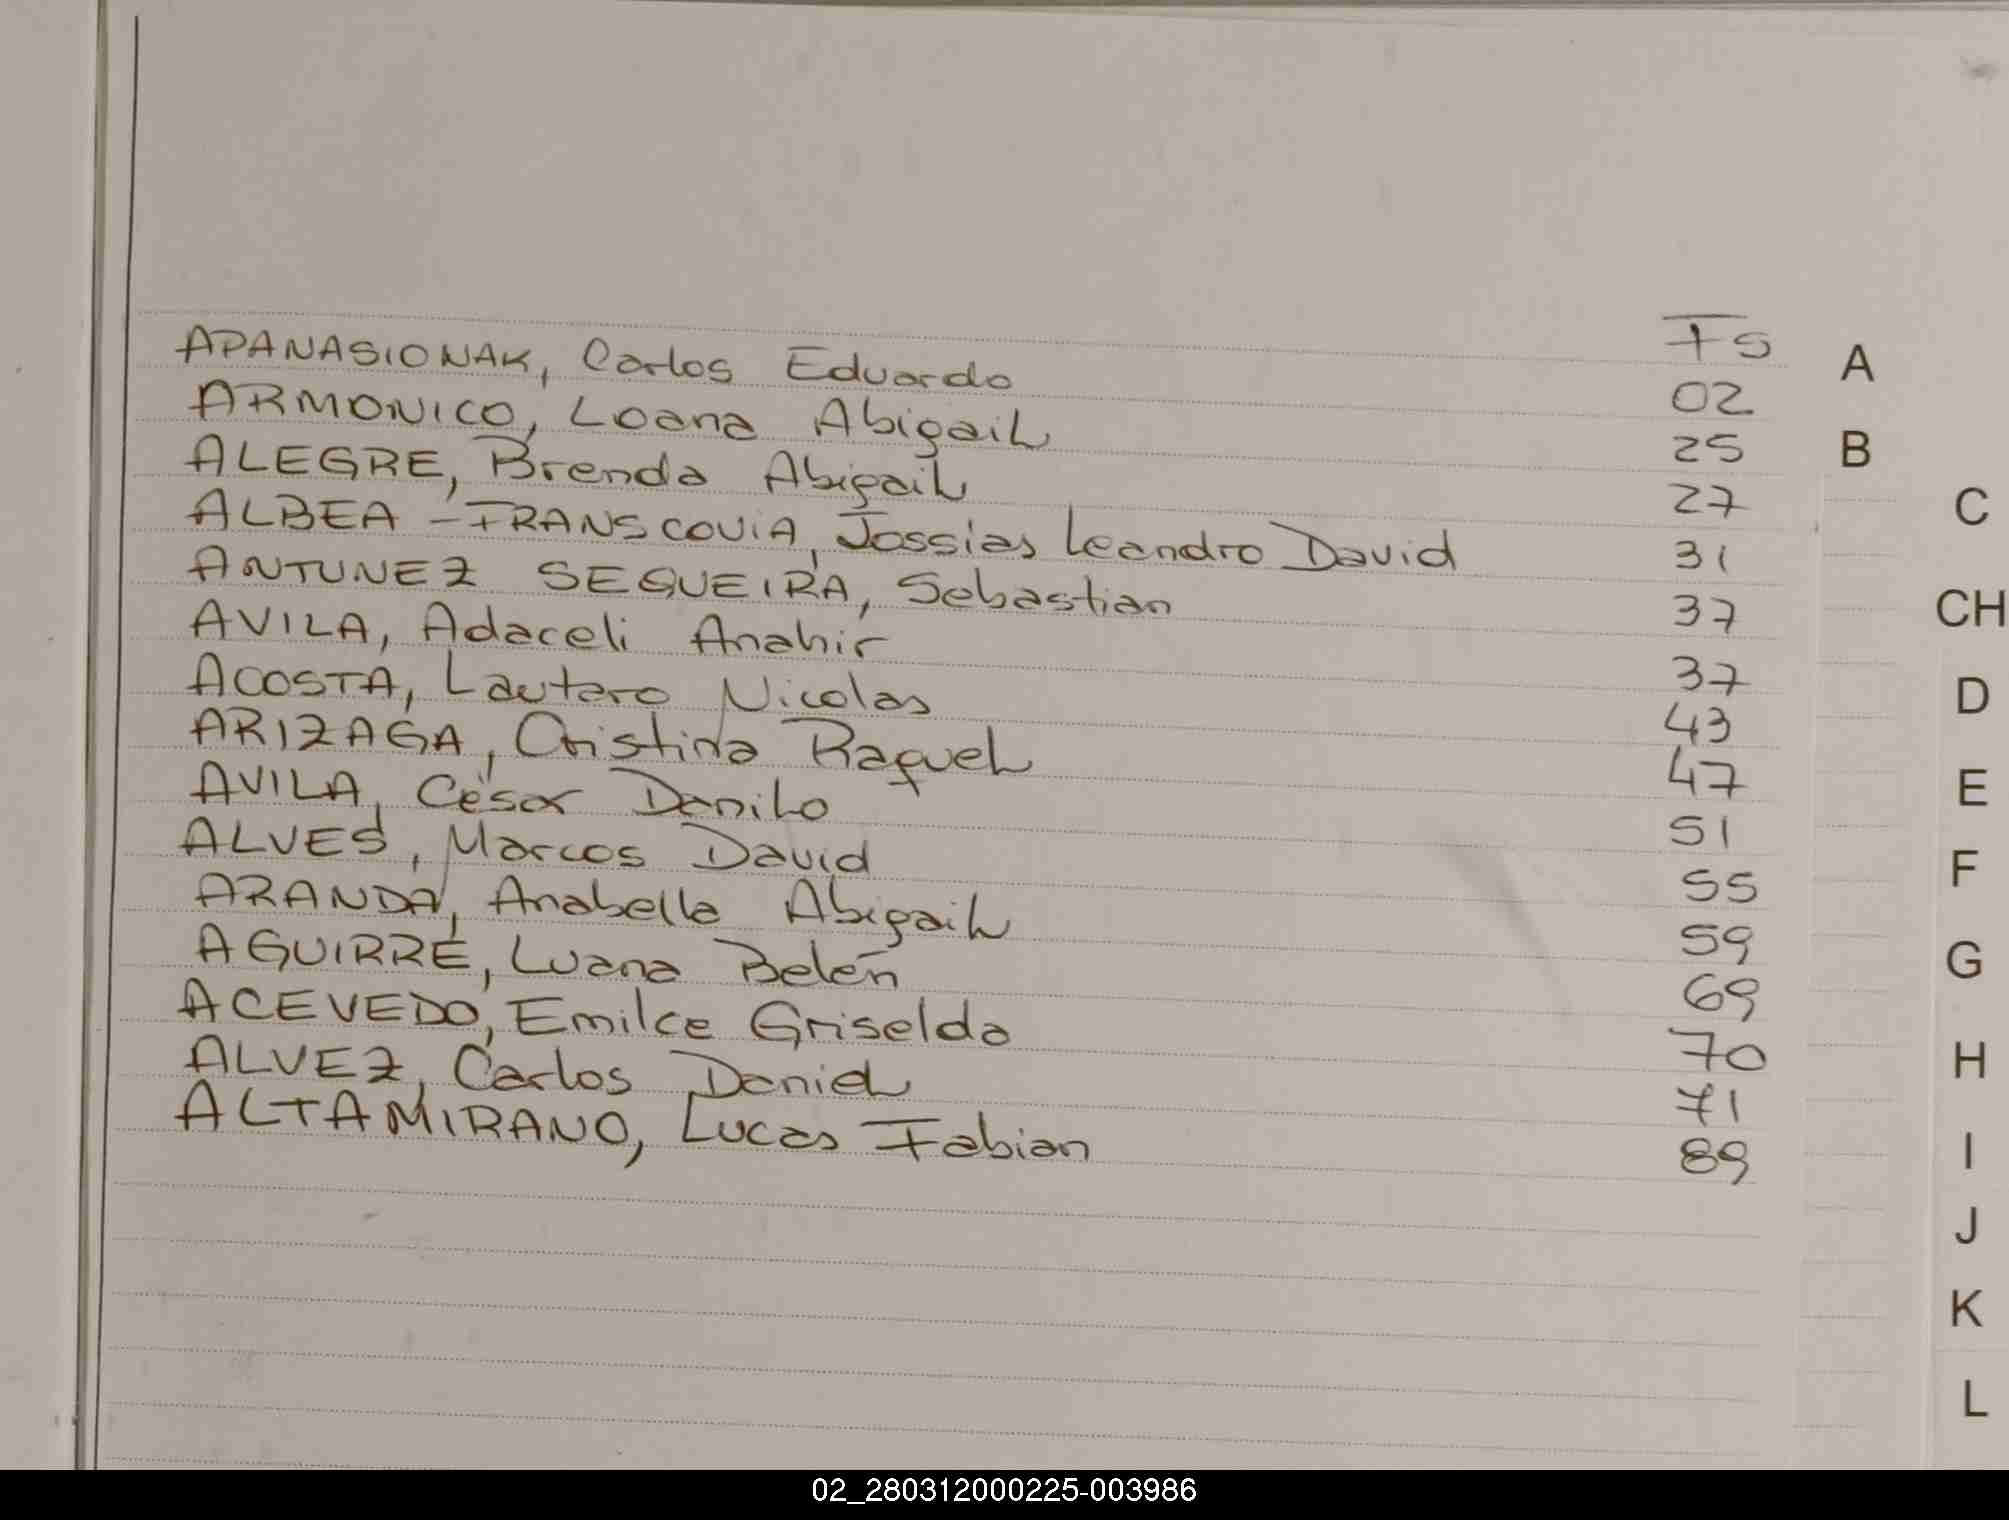 Fs
APANASIONAK, Carlos Eduardo 02
ARMONICO, Loana Abigail 25
ALEGRE, Brenda Abigail 27
ALBEA - FRANSCOVIA, Jossias Leandro David 31
ANTUNEZ SEQUEIRA, Sebastian 37
AVILA, Adaceli Anahir 37
ACOSTA, Lautaro Nicolas 43
ARIZAGA, Cristina Raquel 47
AVILA, César Danilo 51
ALVES, Marcos David 55
ARANDA, Anabella Abigail 59
AGUIRRE, Luana Belén 69
ACEVEDO, Emilce Griselda 70
ALVEZ, Carlos Daniel 71
ALTAMIRANO, Lucas Fabian 89
A
B
C
CH
D
E
F
G
H
I
J
K
L
02_280312000225-003986